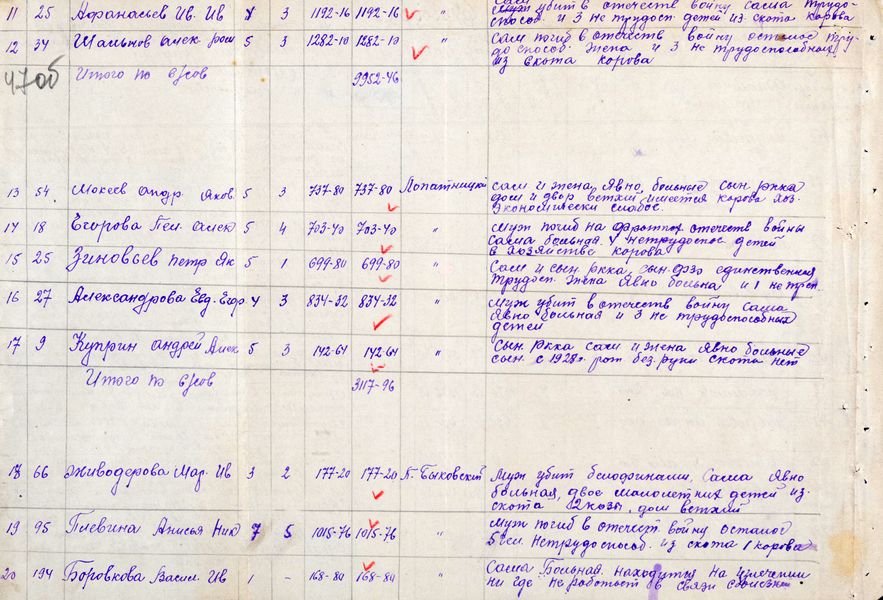 11 25 Афанасьев Ив. Ив 4 3 1192-16 1192-16 " муж убит в отечеств войну сама трудо-
способ. и 3 не трудосп. детей из скота корова
12 34 Шальнов Алек 5 3 1282-10 1282-10 " Сам погиб в отечеств войну осталос тру-
доспособ. жена и 3 не трудоспособных
из скота корова
4706 Итого по с/сов 9952-46
13 54 Мокеев Андр Яков. 5 3 737-80 737-80 Лопатницкий сам и жена явно больные сын ркка
дом и двор ветхий имеется корова хоз.
экономически слабое.
14 18 Егорова Пел. Алек 5 4 703-40 703-40 " муж погиб на фронтах отечеств войны
сама больная 4 нетрудоспос детей
в хозяйстве корова
15 25 Зиновьев Петр Як 5 1 699-80 699-80 " Сам и сын ркка, сын фзо единственная
трудосп. жена явно больна и 1 не
16 27 Александрова Евд. Егор 4 3 834-32 834-32 " муж убит в отечеств войну сама
явно больная и 3 не трудоспособных
детей
17 9 Куприн Андрей Алек 5 3 142-64 142-64 " Сын ркка сам и жена явно больные
сын с 1928г. рож без руки скота нет
Итого по с/сов 3117-96
18 66 Живодерова Мар. Ив 3 2 177-20 177-20 П. Быковский Муж убит белофинами, Сама явно
больная, двое малолетних детей из-
скота 2 козы, дом ветхий
19 95 Плевина Анисья Ник 7 5 1015-76 1015-76 " муж погиб в отечест войну осталос
5 чел. нетрудоспособ. из скота 1 корова
20 194 Боровкова Васил. Ив 1 - 168-80 168-80 " Сама Больная. находится на излечении
ни где не работает в связи с болезнью